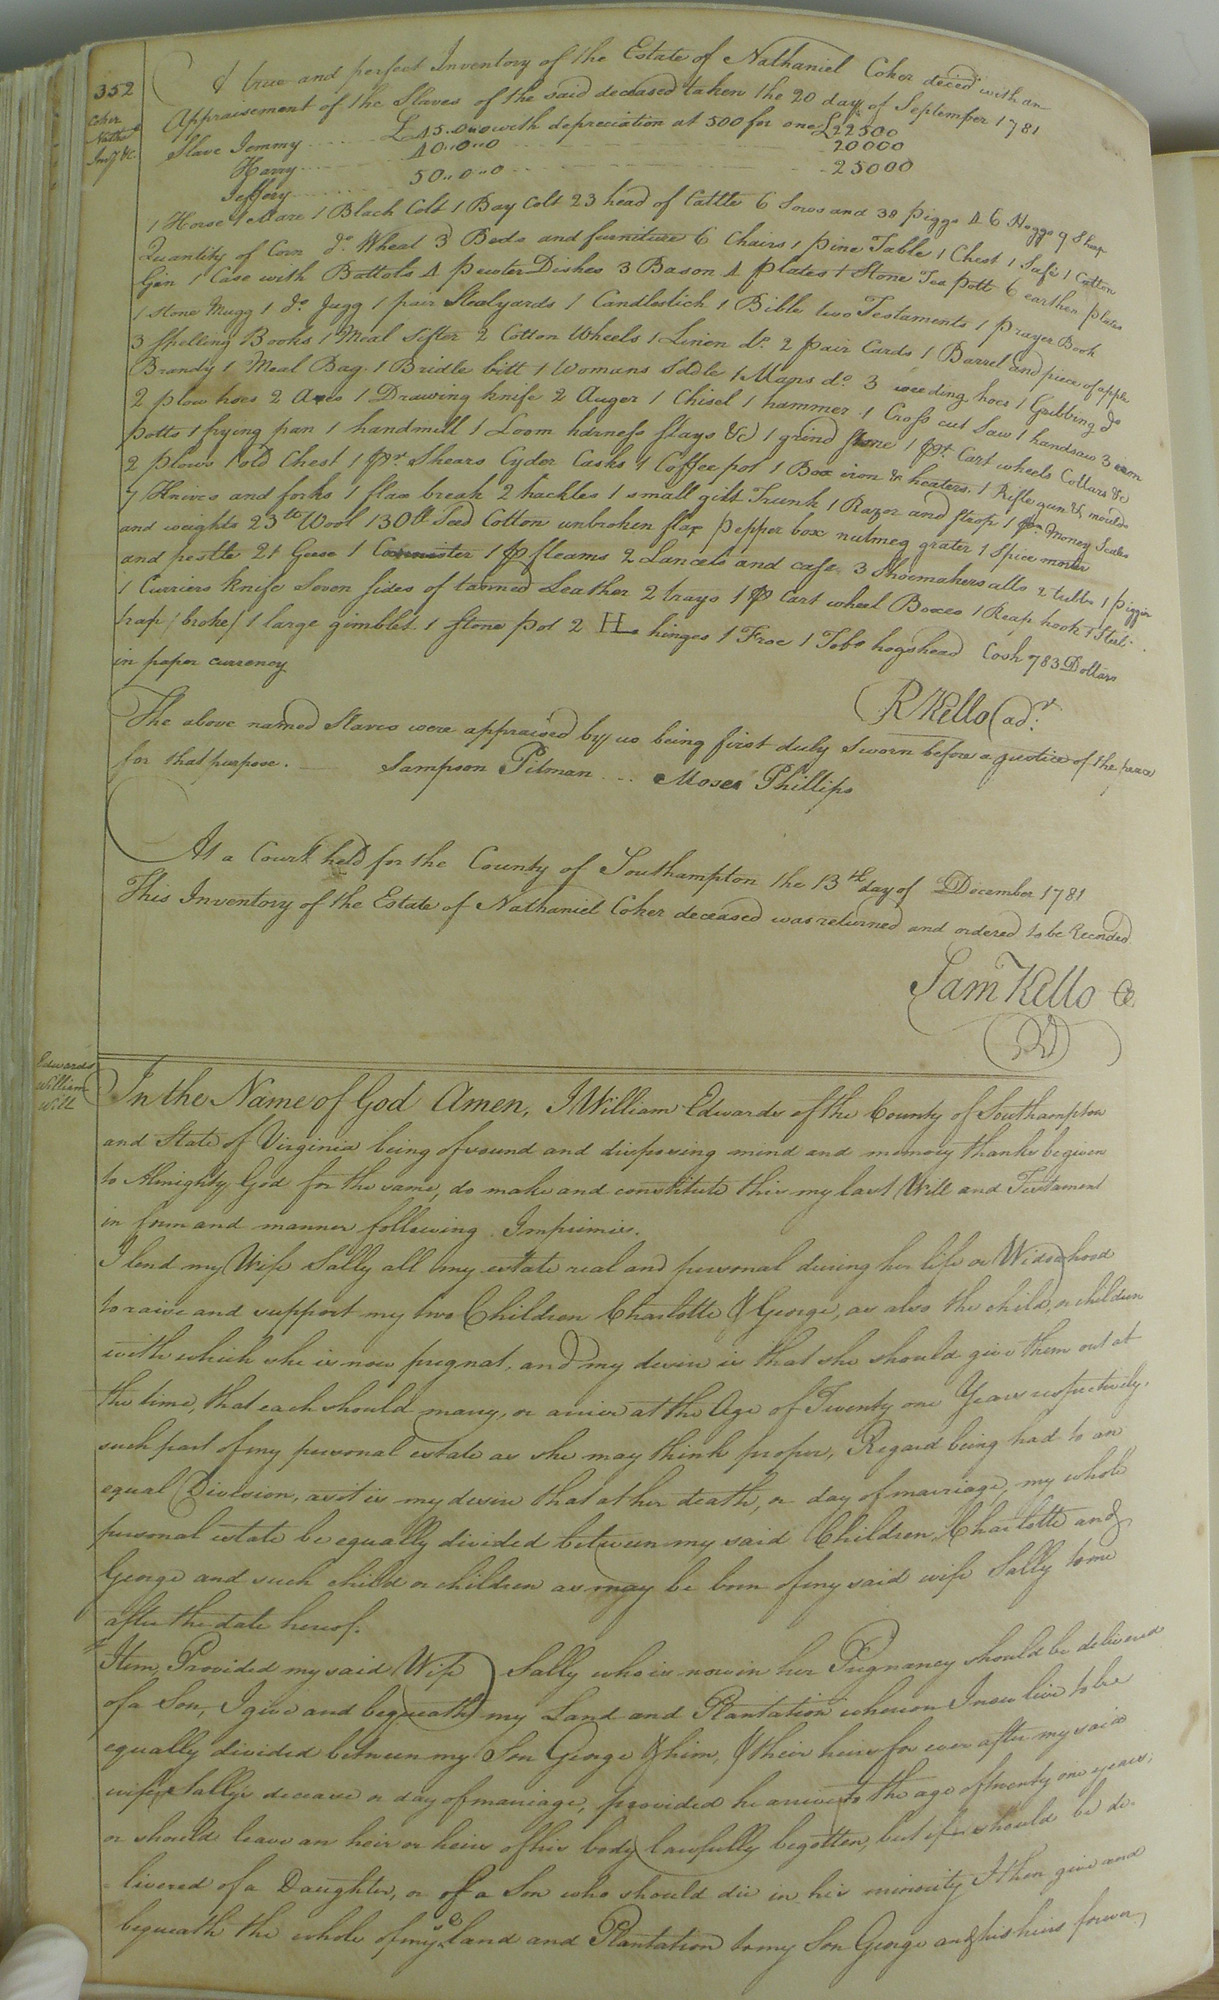 352
Coker
Nathal
Invy &c.
A true and perfect Inventory of the Estate of Nathaniel Coker deced with an
Appraisement of the Slaves of the said deceased taken the 20 day of September 1781
Slave Jemmy £45.0.0 with depreciation at 500 for one £22500
Harry 40..0..0 20000
Jeffery 50..0..0 25000
1 Horse 1 Mare 1 Black Colt 1 Bay Colt 23 head of Cattle 6 Sows and 38 Piggs 46 Hoggs 9 Sheep
Quantity of Corn do. Wheat 3 Beds and furniture 6 Chairs 1 Pine Table 1 Chest 1 Safe 1 Cotton
Gin 1 Case with Bottols 4 Pewter Dishes 3 Bason 4 Plates 1 Stone Tea Pott 6 earthen Plates
1 Stone Mugg 1 do. Jugg 1 pair Stealyards 1 Candlestick 1 Bible two Testaments 1 Prayer Book
3 Spelling Books 1 Meal Sifter 2 Cotton Wheels 1 Linen do. 2 pair Cards 1 Barrel and piece of apple
Brandy 1 Meal Bag 1 Bridle bitt 1 Womans Sddle 1 Mans do. 3 weeding hoes 1 Grubbing do
2 plow hoes 2 Axes 1 Drawing knife 2 Auger 1 Chisel 1 hammer 1 Cross cut Saw 1 handsaw 3 iron
Potts 1 frying pan 1 handmill 1 Loom harness Slays &c) 1 grind Stone 1 pr. Cart wheels Collars &c
2 Plows 1 old Chest 1 pr. Shears Cyder Casks 1 Coffee pot 1 Box iron & heaters 1 Rifle gun & moulds
7 Knives and forks 1 flax break 2 hackles 1 small gilt Trunk 1 Razor and Strop 1 pr. Money Scales
and weights 23 lb Wool 130 lb Seed Cotton unbroken flax Pepper box nutmeg grater 1 Spice morter
and pestle 21 Geese 1 Cannister 1 p fleams 2 Lancets and case 3 Shoemakers alls 2 tubbs 1 piggin
1 Curriers knife Seven Sides of tanned Leather 2 trays 1 p Cart wheel Boxes 1 Reap hook 1 Steel
trap (broke) 1 large gimblet 1 Stone Pot 2 HLs hinges 1 Froe 1 Tobo. hogshead Cash 783 Dollars
in paper currency
R Kello adr.
The above named Slaves were appraised by us being first duly Sworn before a Justice of the peace
for that purpose. Sampson Pitman Moses Phillips
At a Court held for the County of Southampton the 13th day of December 1781
This Inventory of the Estate of Nathaniel Coker deceased was returned and ordered to be Recorded
Sam Kello Cl
Edwards
William
Will
In the Name of God Amen, I William Edwards of the County of Southampton
and State of Virginia being of sound and disposing mind and memory thanks be given
to Almighty God for the same, do make and constitute this my last Will and Testament
in form and manner following. Imprimis.
I lend my Wife Sally all my estate real and personal during her life or Widowhood
to raise and support my two Children Charlotte & George, as also the child, or children
with which she is now pregnat, and my desire is that she should give them out at
the time, that each should marry, or arrive at the Age of Twenty one Years respectively.
such part of my personal estate as she may think proper, Regard being had to an
equal Division, as it is my desire that at her death, or day of marriage, my whole
personal estate be equally divided between my said Children, Charlotte and
George and such child or children as may be born of my said wife Sally to me
after the date hereof.
Item, Provided my said Wife Sally who is now in her Pregnancy should be delivered
of a Son, I give and bequeath my Land and Plantation whereon I now live to be
equally divided between my Son George & him, & their heirs for ever after my said
wife Sally's decease or day of marriage, provided he arrives to the age of twenty one years,
or should leave an heir or heirs of his body lawfully begotten, but if should be de-
livered of a Daughter, or of a Son who should die in his minority I then give and
bequeath the whole of my Land and Plantation to my Son George and his heirs forever,